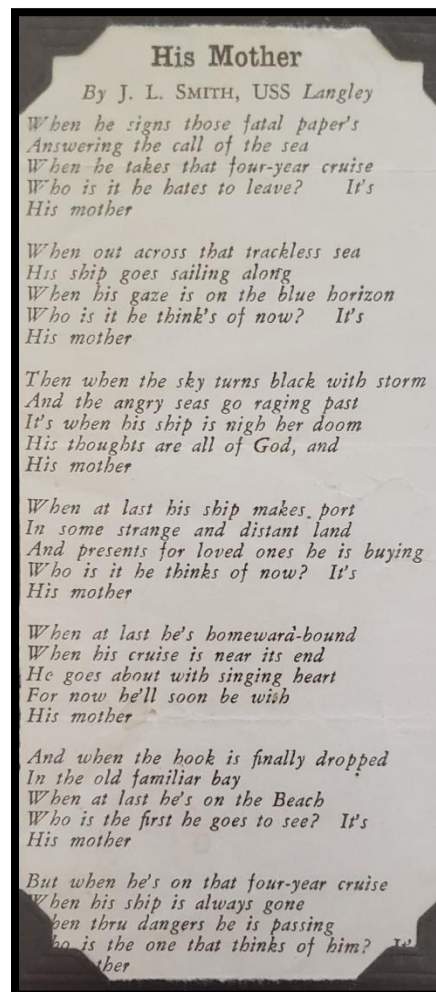 His Mother
By J. L. SMITH, USS Langley
When he signs those fatal paper's
Answering the call of the sea
When he takes that four-year cruise
Who is it he hates to leave? It's
His mother
When out across that trackless sea
His ship goes sailing along
When his gaze is on the blue horizon
Who is it he think's of now? It's
His mother
Then when the sky turns black with storm
And the angry seas go raging past
It's when his ship is nigh her doom
His thoughts are all of God, and
His mother
When at last his ship makes port
In some strange and distant land
And presents for loved ones he is buying
Who is it he thinks of now? It's
His mother
When at last he's homeward-bound
When his cruise is near its end
He goes about with singing heart
For now he'll soon be with
His mother
And when the hook is finally dropped
In the old familiar bay
When at last he's on the Beach
Who is the first he goes to see? It's
His mother
But when he's on that four-year cruise
When his ship is always gone
hen thru dangers he is passing
ho is the one that thinks of him? It'
ther